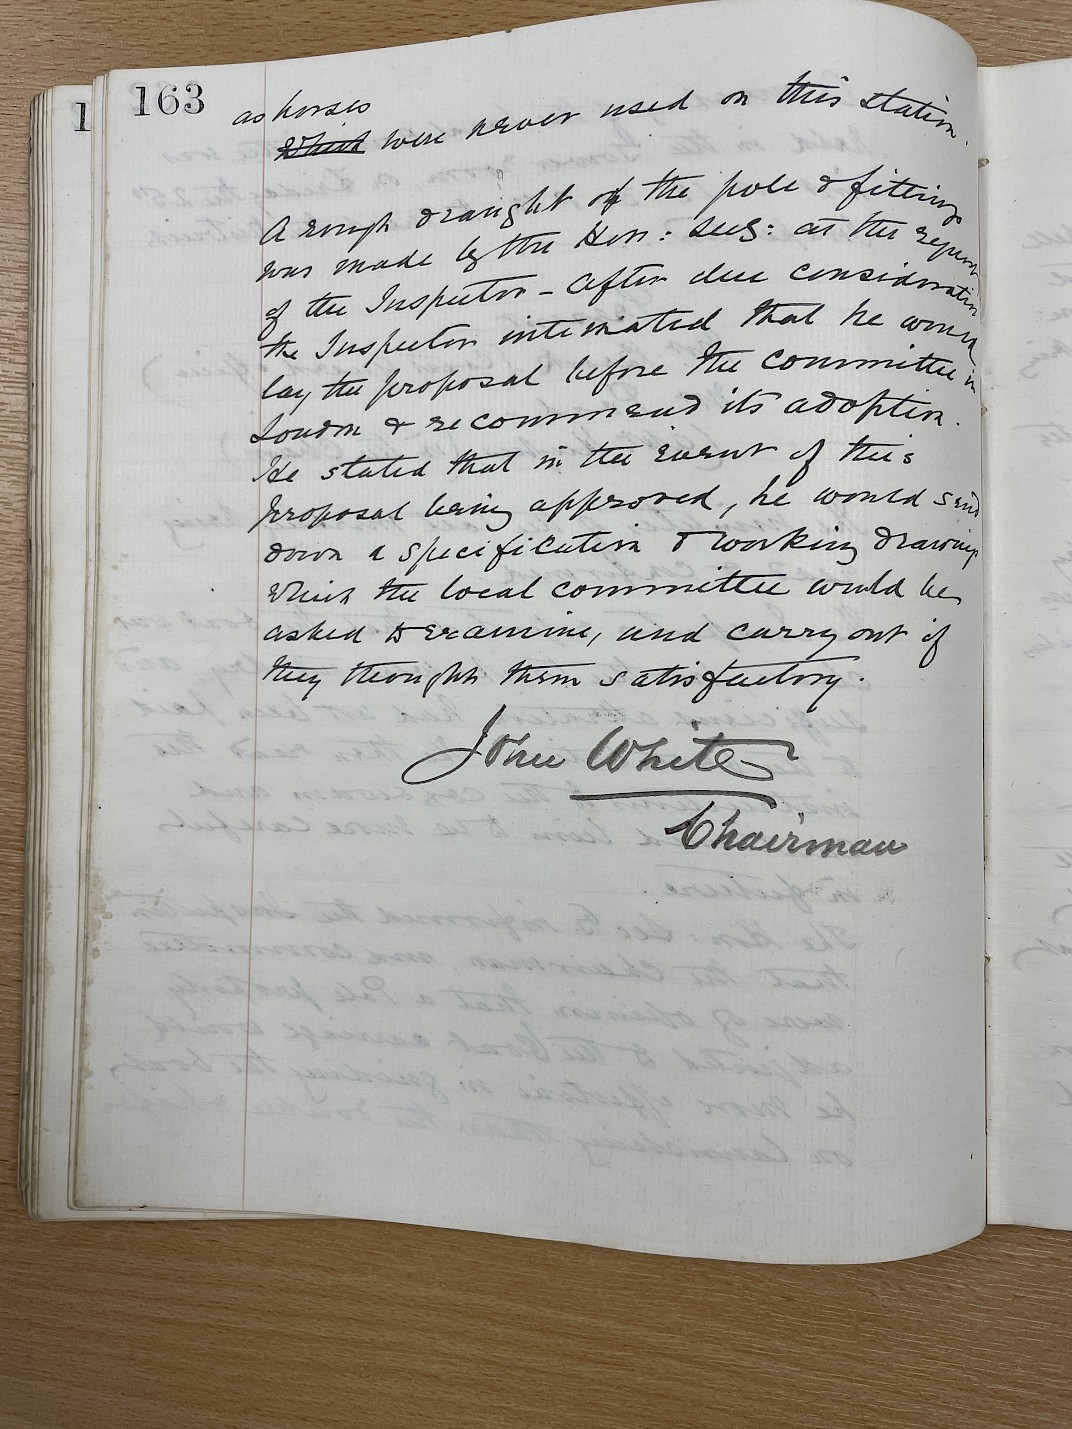 163
1
as horses
which were never used on this station.
A rough draught of the pole & fittings
was made by the Hon: Sec: at the request
of the Inspector - after due consideration
the Inspector intimated that he would
lay the proposal before the committee in
London & recommend its adoption.
He stated that in the event of this
proposal being approved, he would send
down a specification & working drawings
which the local committee would be
asked to examine, and carry out if
they thought them satisfactory.
John White
Chairman